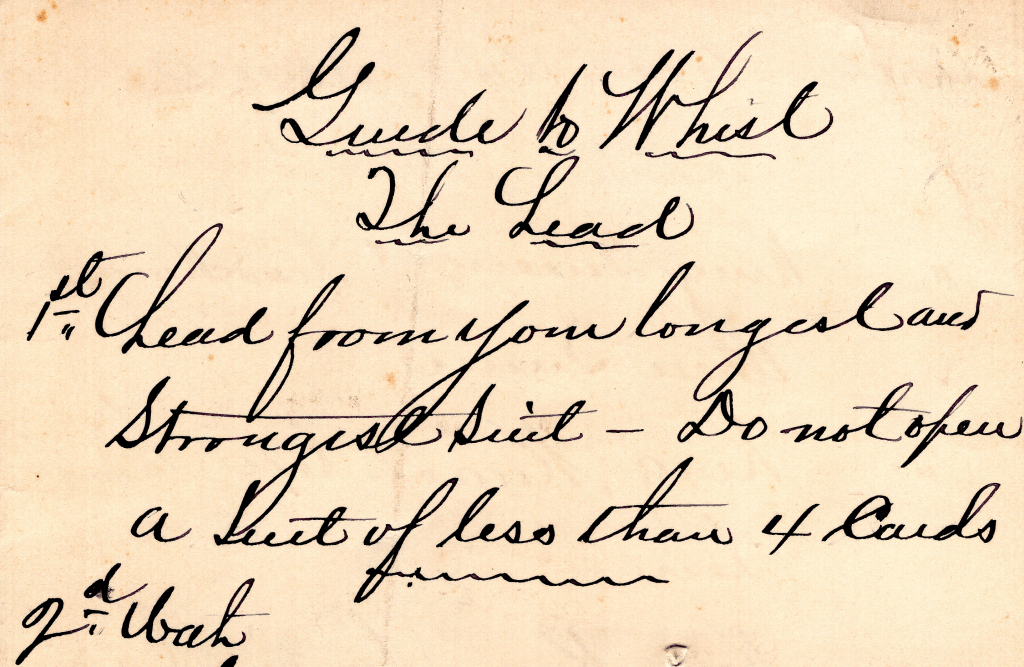 Guide to Whist
The Lead
1st Lead from your longest and
Strongest Suit – Do not open
a Suit of less than 4 Cards
2d With